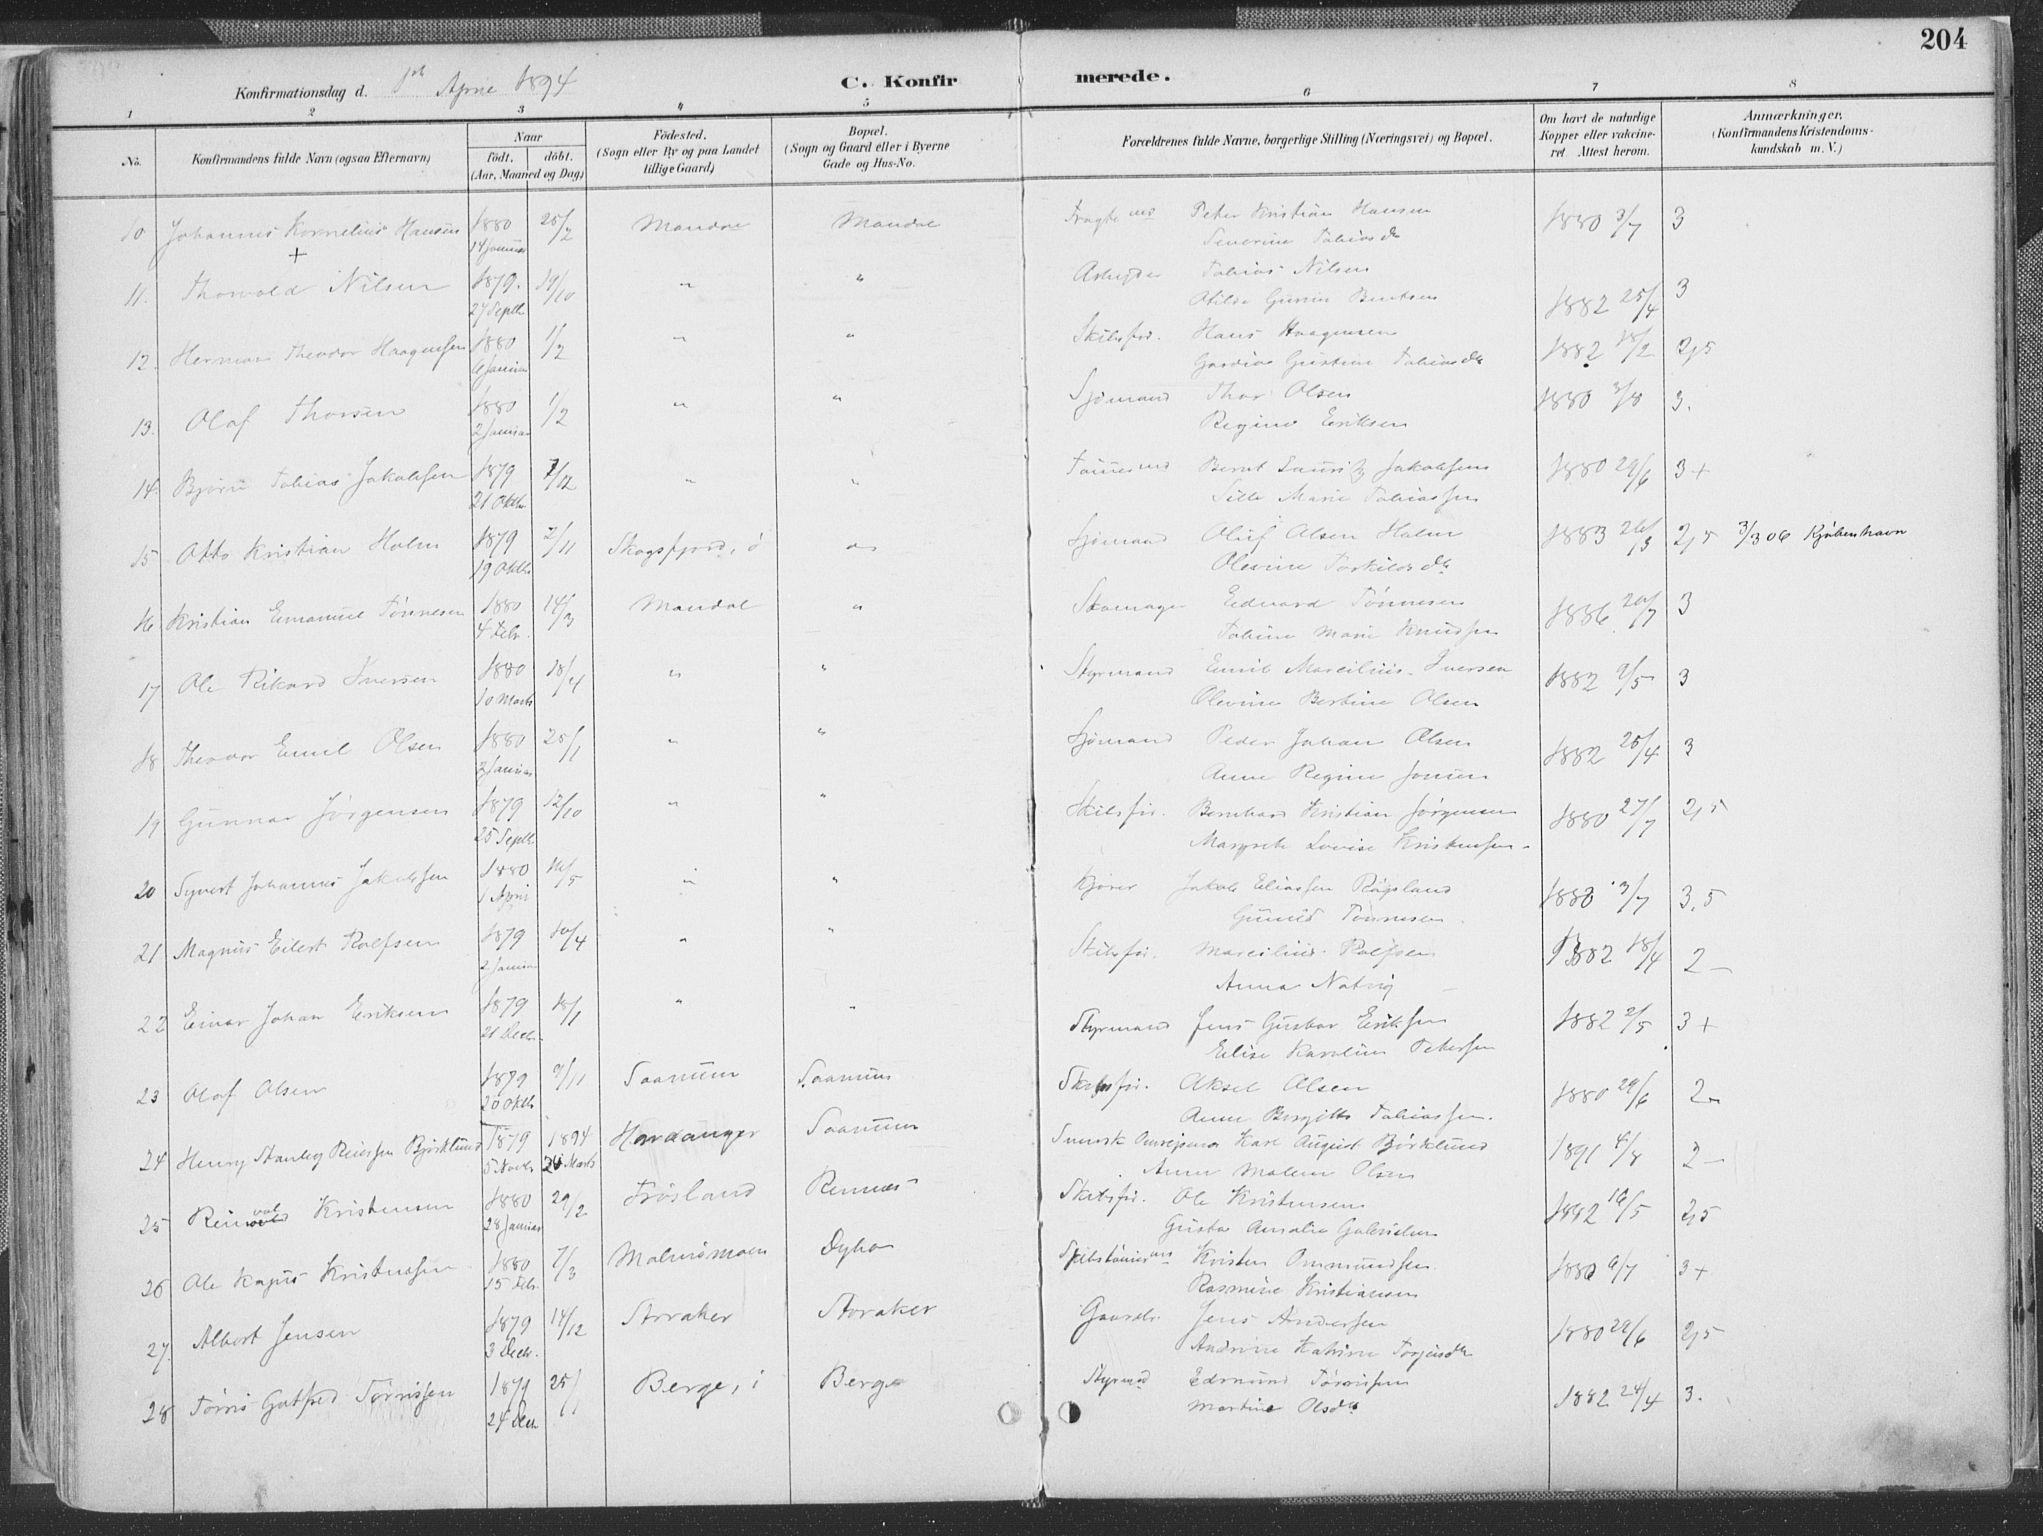 204
Konfirmationsdag d. 1ste April 1894
C. Konfir merede.
1 2 3 4 5 6 7 8
No. Konfirmandens fulde Navn (ogsaa Efternavn)
Naar födt. döbt. (Aar, Maaned og Dag)
Födested. (Sogn eller By og paa Landet tillige Gaard)
Bopæl. (Sogn og Gaard eller i Byerne Gade og Hus-No.
Forældrenes fulde Navne, borgerlige Stilling (Næringsvei) og Bopæl.
Om havt de naturlige Kopper eller vakcineret. Attest herom.
Anmærkninger. (Konfirmandens Kristendomskundskab m. V.)
10 Johannes Kornelius Hansen 1880 25/2 Mandal Mandal Peter Kristian Hansen 1880 3/7 3
+ 14 Januar Severine Tobiasdtr
11. Thorvald Nilsen 1879. 19/10 " " Arbeider Tobias Nilsen 3
27 Septb Otilde Gurine Bentsen 1882 25/4
12. Herman Theodor Haagensen 1880 1/2 " " Skibsfør. Hans Haagensen 1882 18/2 2,5
6 Januar Gustine Tobiasdtr
13. Olaf Thorsen 1880 1/2 " " Sjømand Thor Olsen 1880 3/8 3.
2 Januar Regine Eriksen
14. Bjørn Tobias Jakobsen 1879 7/12 " " Bernt Lauritz Jakobsen 1880 29/6 3+
21 Oktbr Sille Marie Tobiassen
15 Otto Kristian Holm 1879 2/11 Skogsfjord, ø " Sjømand Oluf Olsen Holm 1883 26/3 2,5 3/3 06 Kjøbenhavn
19 Oktbr Olevine Torkildsdtr
16 Kristian Emanuel Tønnesen 1880 14/3 Mandal " Skomager Edvard Tønnesen 1886 20/7 3
4 Febr. Tobine Marie Knudsen
17 Ole Rikard Iversen 1880 18/4 " " Styrmand Emil Marcilius Iversen 1882 2/5 3
10 Marts Olevine Bertine Olsen
18 Theodor Emil Olsen 1880 25/1 " " Sjømand Peder Johan Olsen 1882 25/4 3
2 Januar Anne Regine Jensen
19 Gunnar Jørgensen 1879 12/10 " " Skibsfør. Bernhard Kristian Jørgensen 1880 27/7 2,5
25 Septb. Margrete Lovise Kristensen
20 Syvert Johannes Jakobsen 1880 16/5 " " Kjører Jakob Eliassen Røgsland 1880 3/7 3,5
1 April Gunild Tønnesen
21 Magnus Eilert Rolfsen 1879 10/4 " " Skibsfør. Marcilius Rolfsen 1882 18/4 2–
2 Januar Anna Natvig
22 Einar Johan Eriksen 1879 18/1 " " Styrmand Jens Gustav Eriksen 1882 2/5 3+
21 Decb. Elise Karoline Petersen
23 Olaf Olsen 1879 9/11 Saanum Saanum Skibsfør. Aksel Olsen 1880 29/6 2–
20 Oktb Anne Bergitte Tobiassen.
24 Henry Stanley Reiersen Bjørklund 1879 1894 Hardanger Saanum Svensk Karl August Björklund 1891 4/8 2–
5 Novbr 26 Marts Anne Malene Olsen
25 Reinvald Kristensen 1880 29/2 Frøsland Rennes Skibsfør. Ole Kristensen 1882 16/5 2,5
28 Januar Gusta Amalie Gabrielsen
26 Ole Kajus Kristensen 1880 7/3 Malmömoen Dybo Kristen Ommundsen 1880 6/7 3+
15 Febr. Rasmine Kristiansen
27. Albert Jensen 1879 14/12 Storaker Storaker Gaardbr. Jens Andersen 1880 29/6 2,5
3 Decb. Andrine Katrine Torjusdtr
28 Tørris Gotfred Tørrissen 1879 25/1 Berge, i Berge Styrmd Edmund Tørrissen 1882 24/4 3.
24 Decb Martine Olsdtr